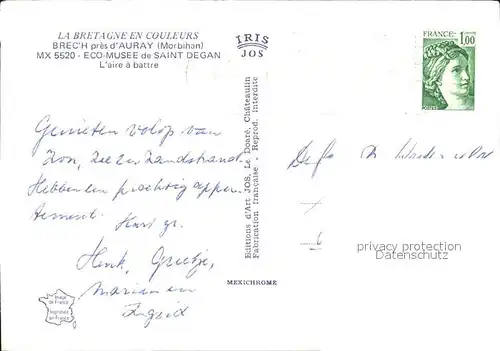 LA BRETAGNE EN COULEURS
BREC'H près d'AURAY (Morbihan)
MX 5520 - ECO-MUSEE de SAINT DEGAN
L'aire à battre
IRIS
JOS
FRANCE
1,00
POSTES
Genieten volop van
Zon, Zee en Zandstrand
Hebben een prachtig appar
tement.
Hart. gr.
Henk, Grietje,
Marian en
Ingrid
Editions d'Art JOS, Le Doaré, Châteaulin
Fabrication française. Reprod. interdite
MEXICHROME
privacy protection
Datenschutz
Image
de France
Imprimée
en France